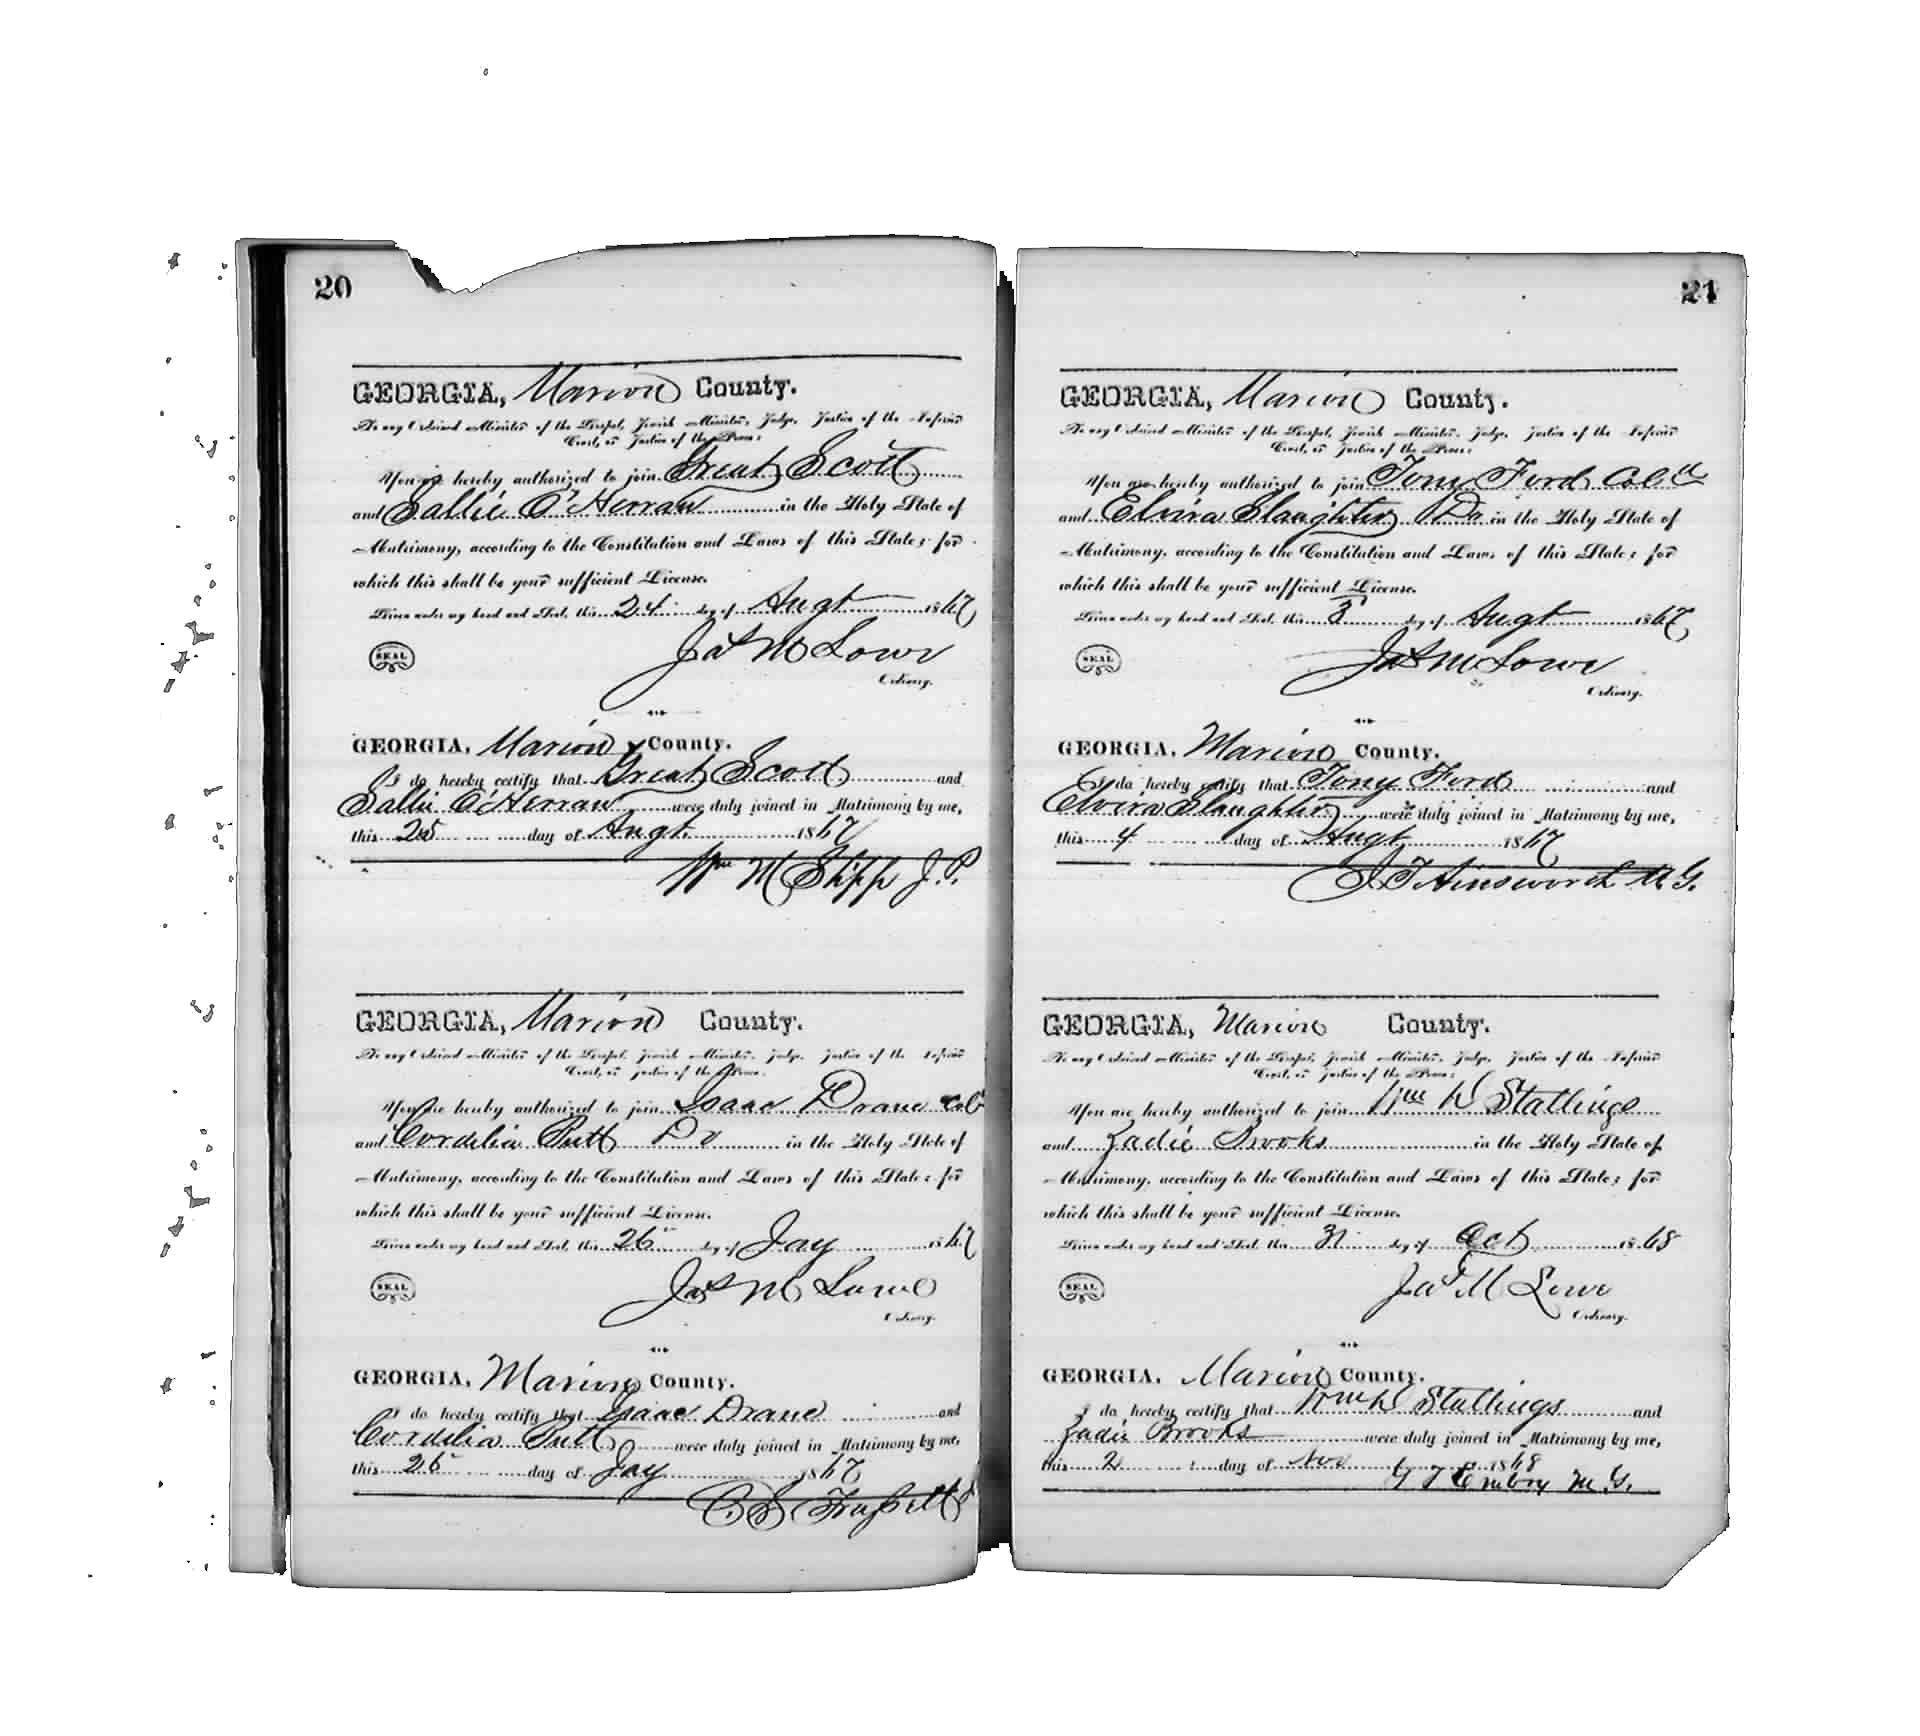 20
GEORGIA, Marion County.
To any Ordained Minister of the Gospel, Jewish Minister, Judge, Justice of the Inferior
Court, or Justice of the Peace:
You are hereby authorized to join Great Scott
and Sallie O'Herran in the Holy State of
Matrimony, according to the Constitution and Laws of this State; for
which this shall be your sufficient License.
Given under my hand and Seal, this 24 day of Augt 1867
SEAL
Jas M Lowe
Ordinary.
GEORGIA, Marion County.
I do hereby certify that Great Scott and
Sallie O'Herran were duly joined in Matrimony by me,
this 25 day of Augt 1867
Wm M Stipp J.P.
GEORGIA, Marion County.
To any Ordained Minister of the Gospel, Jewish Minister, Judge, Justice of the Inferior
Court, or Justice of the Peace:
You are hereby authorized to join Isaac Drane Col
and Cordelia Putt Do in the Holy State of
Matrimony, according to the Constitution and Laws of this State; for
which this shall be your sufficient License.
Given under my hand and Seal, this 26 day of Jay 1867
SEAL
Jas M Lowe
Ordinary.
GEORGIA, Marion County.
I do hereby certify that Isaac Drane and
Cordelia Putt were duly joined in Matrimony by me,
this 26 day of Jay 1867
21
GEORGIA, Marion County.
To any Ordained Minister of the Gospel, Jewish Minister, Judge, Justice of the Inferior
Court, or Justice of the Peace:
You are hereby authorized to join Tony Ford Cold
and Elvira Slaughter Do in the Holy State of
Matrimony, according to the Constitution and Laws of this State; for
which this shall be your sufficient License.
Given under my hand and Seal, this 3 day of Augt 1867
SEAL
Jas M Lowe
Ordinary.
GEORGIA, Marion County.
I do hereby certify that Tony Ford and
Elvira Slaughter were duly joined in Matrimony by me,
this 4 day of Augt 1867
J T Ainsworth M.G.
GEORGIA, Marion County.
To any Ordained Minister of the Gospel, Jewish Minister, Judge, Justice of the Inferior
Court, or Justice of the Peace:
You are hereby authorized to join Wm D Stallings
and Zadie Brooks in the Holy State of
Matrimony, according to the Constitution and Laws of this State; for
which this shall be your sufficient License.
Given under my hand and Seal, this 31 day of Oct 1868
SEAL
Jas M Lowe
Ordinary.
GEORGIA, Marion County.
I do hereby certify that Wm D Stallings and
Zadie Brooks were duly joined in Matrimony by me,
this 2 day of Nov 1868
G T Embry M.G.